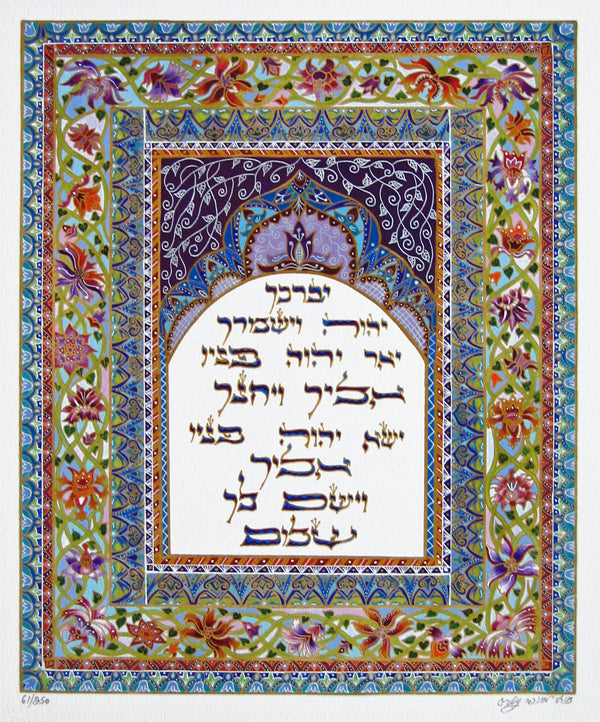 יברכך
יהוה וישמרך
יאר יהוה פניו
אליך ויחנך
ישא יהוה פניו
אליך
וישם לך
שלום